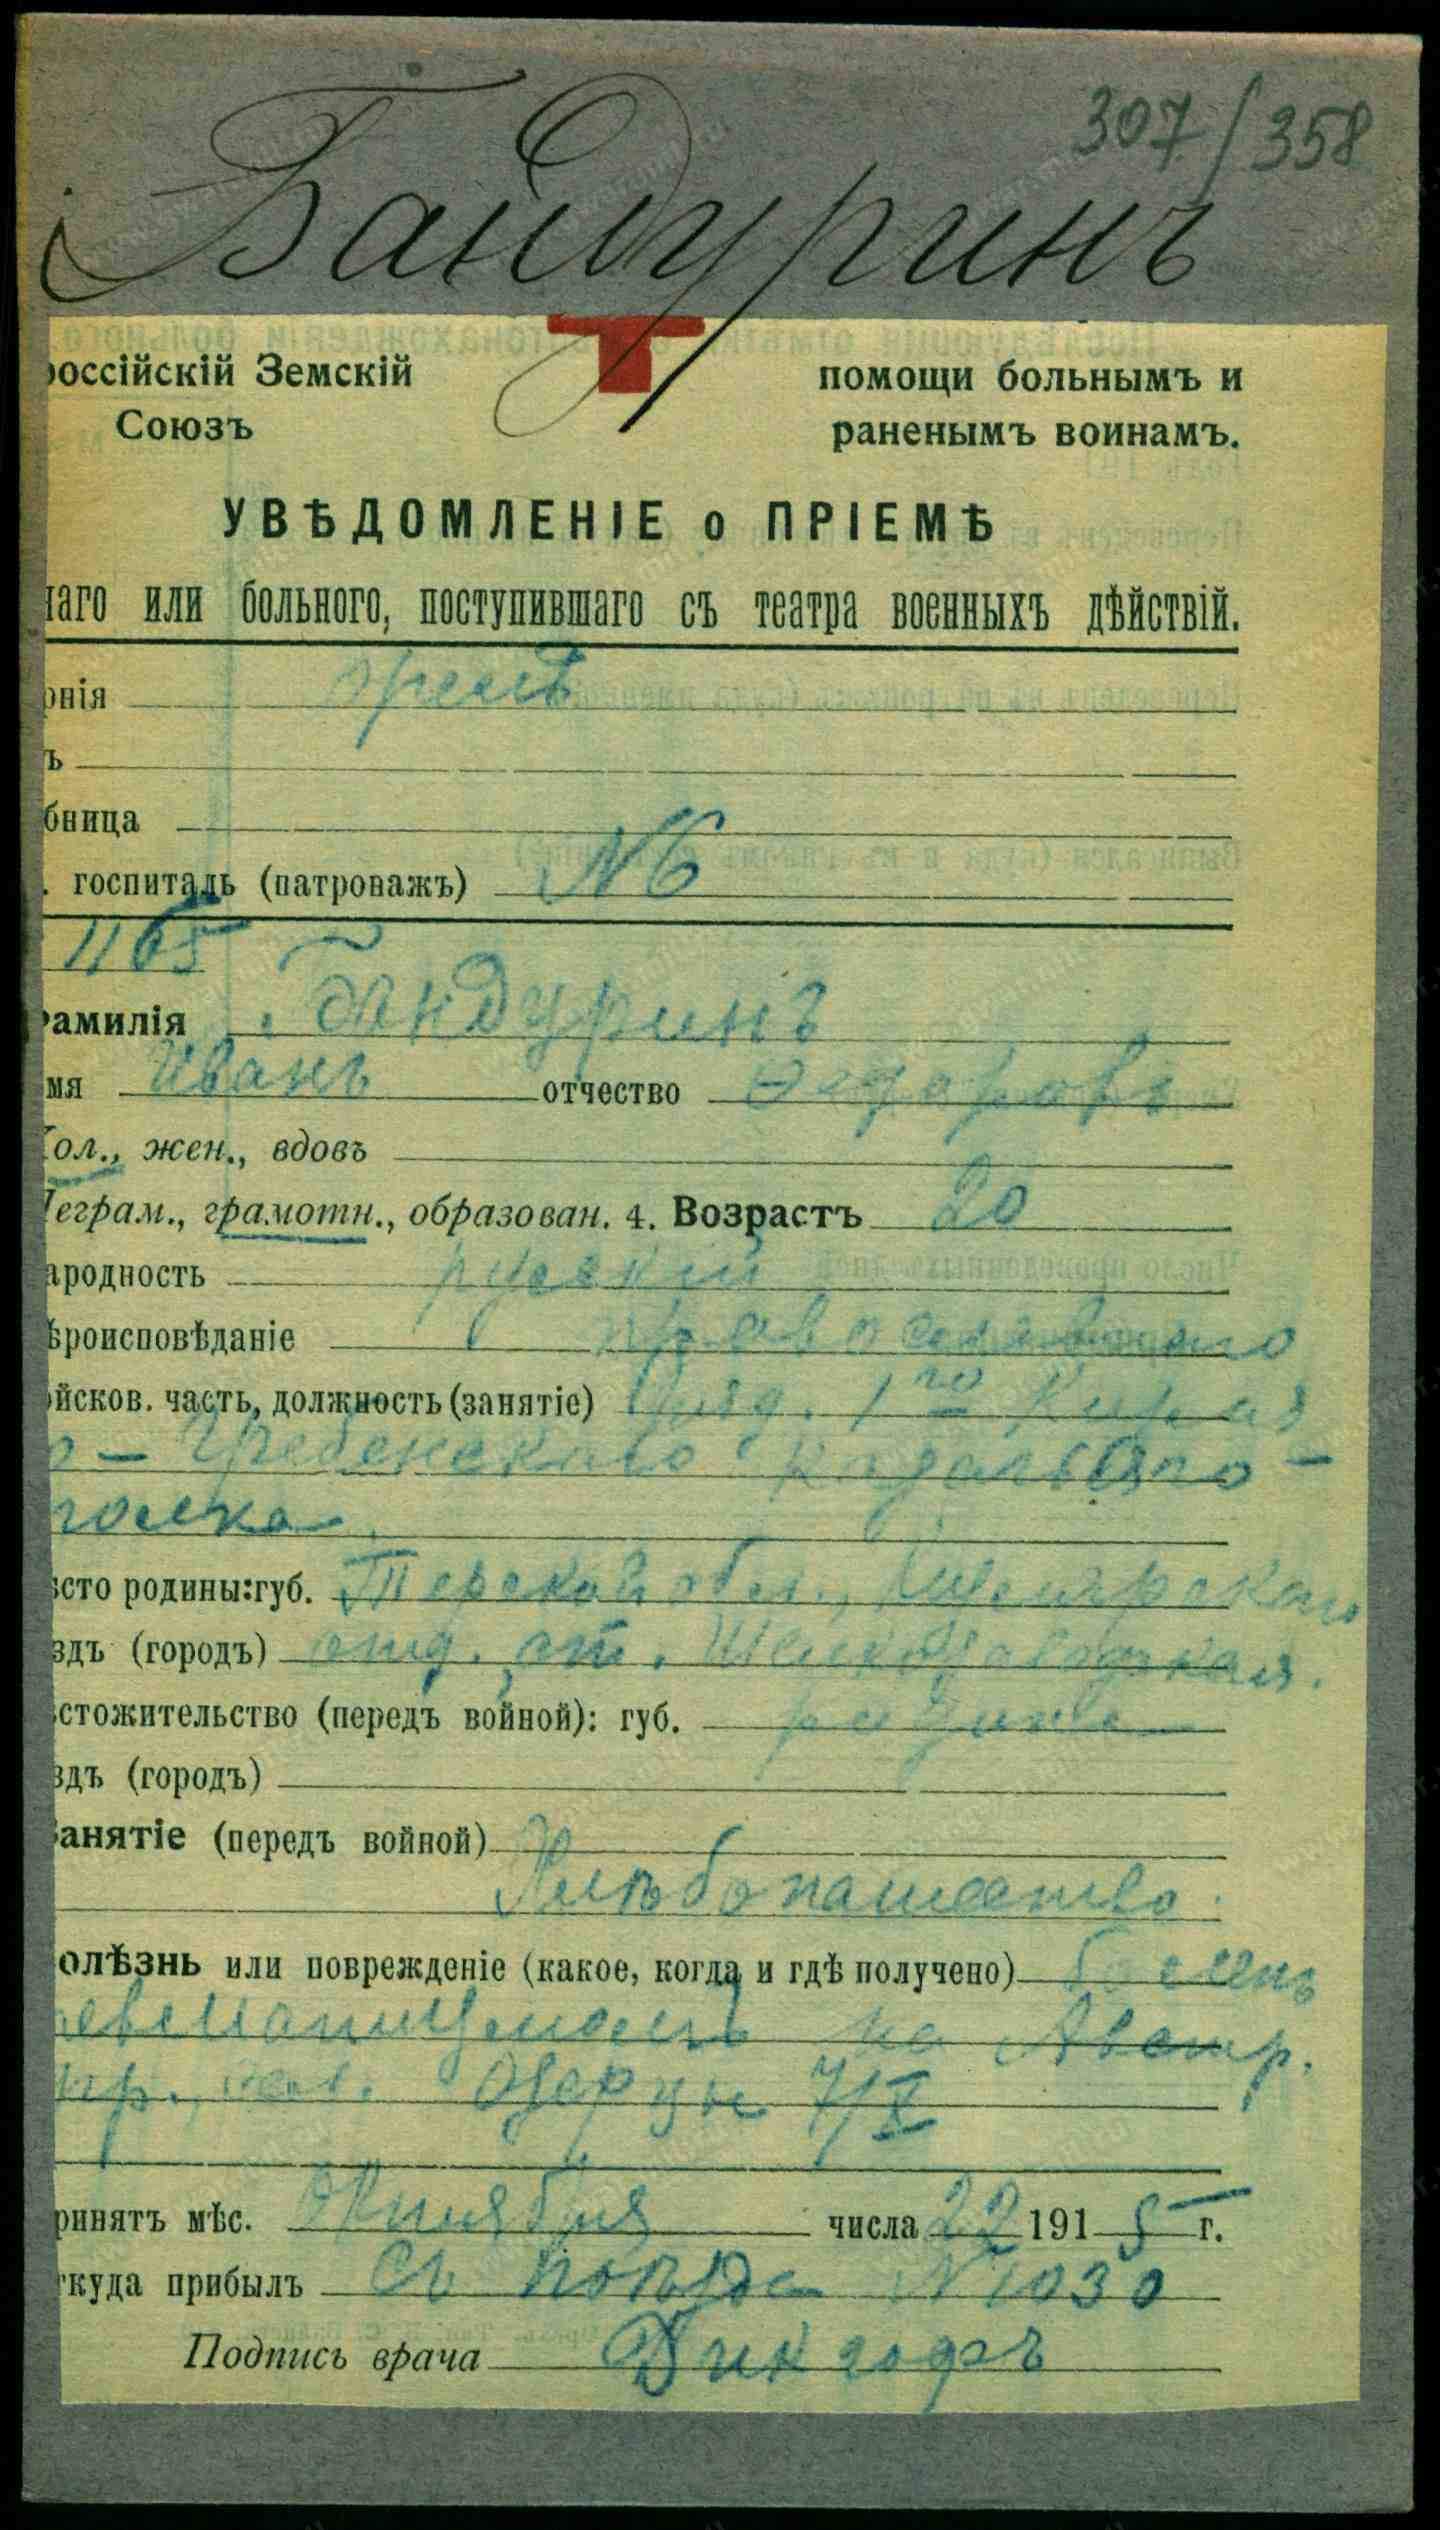 307/358
Бандуринъ
россійскій Земскій
Союзъ
помощи больнымъ и
раненымъ воинамъ.
УВѢДОМЛЕНІЕ о ПРІЕМѢ
наго или больного, поступившаго съ театра военныхъ дѣйствій.
рнія
ъ
бница
. госпиталь (патроважъ) №6
1165
Фамилія Бандуринъ
мя Иванъ отчество Федоровъ
Хол., жен., вдовъ
Неграм., грамотн., образован. 4. Возрастъ 20
ародность русскій
ѣроисповѣданіе православнаго
ойсков. часть, должность (занятіе) ряд. 1го Кизля
о-Гребенскаго казачьяго
полка
ѣсто родины: губ. Терской обл., Кизлярскаго
здъ (городъ) отд. ст. Шелкозаводская.
ѣстожительство (передъ войной): губ. родина
здъ (городъ)
Занятіе (передъ войной)
Хлѣбопашество.
олѣзнь или поврежденіе (какое, когда и гдѣ получено) боленъ
ревматизмомъ на Австр.
7/X
ринятъ мѣс. Октября числа 22 1915 г.
ткуда прибылъ Съ поѣзда №1030
Подпись врача